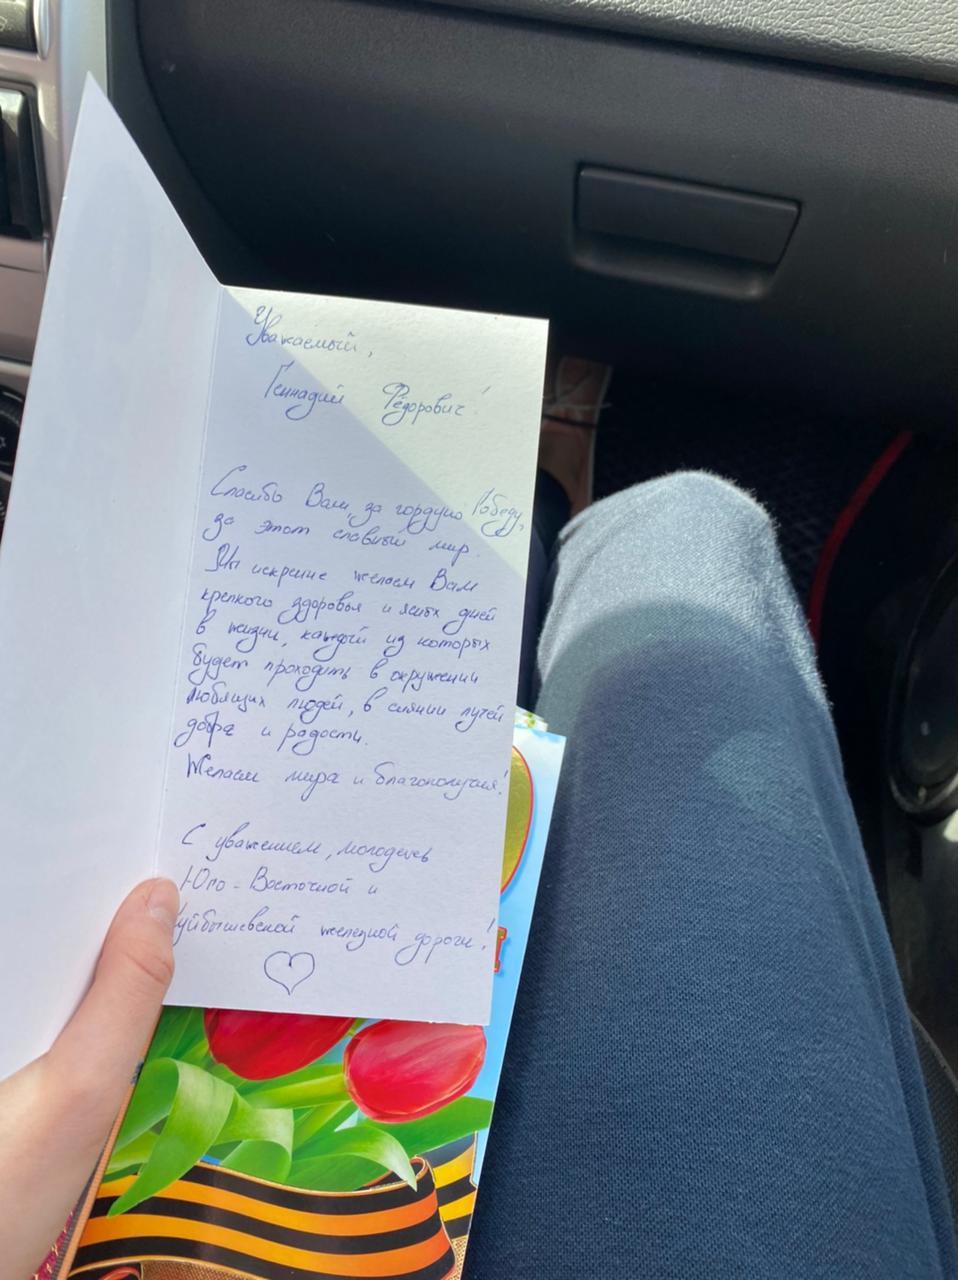 Уважаемый,
Геннадий Фёдорович!
Спасибо Вам, за гордую Победу,
за этот славный мир.
Мы искренне желаем Вам
крепкого здоровья и ясных дней
в жизни, каждый из которых
будет проходить в окружении
любящих людей, в сиянии лучей
добра и радости.
Желаем мира и благополучия!
С уважением, молодежь
Юго-Восточной и
уйбышевской железной дороги!